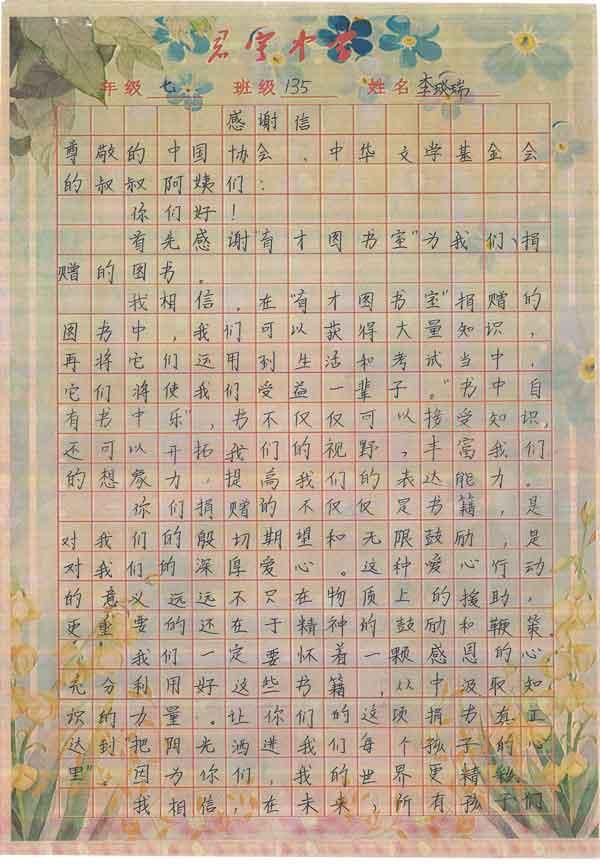 君宇中学
年级 七 班级 135 姓名 李琰瑞
感谢信
尊敬的中国协会、中华文学基金会
的叔叔阿姨们：
你们好！
首先感谢"育才图书室"为我们捐
赠的图书。
我相信，在"育才图书室"捐赠的
图书中，我们可以获得大量知识，
再将它们运用到生活和考试当中，
它们将使我们受益一辈子。"书中自
有书中乐"，书不仅仅可以接受知识，
还可以开拓我们的视野，丰富我们
的想象力，提高我们的表达能力。
你们捐赠的不仅仅是书籍，是
对我们的殷切期望和无限鼓励，是
对我们的深厚爱心。这种爱心行动
的意义远远不只在物质上的援助，
更重要的还在于精神的鼓励和鞭策。
我们一定要怀着一颗感恩的心，
充分利用好这些书籍，从中汲取知
识的力量。让你们的这项捐书真正
达到"把阳光洒进我们每个孩子的心
里"。因为你们，我的世界更精彩。
我相信，在未来，所有孩子们